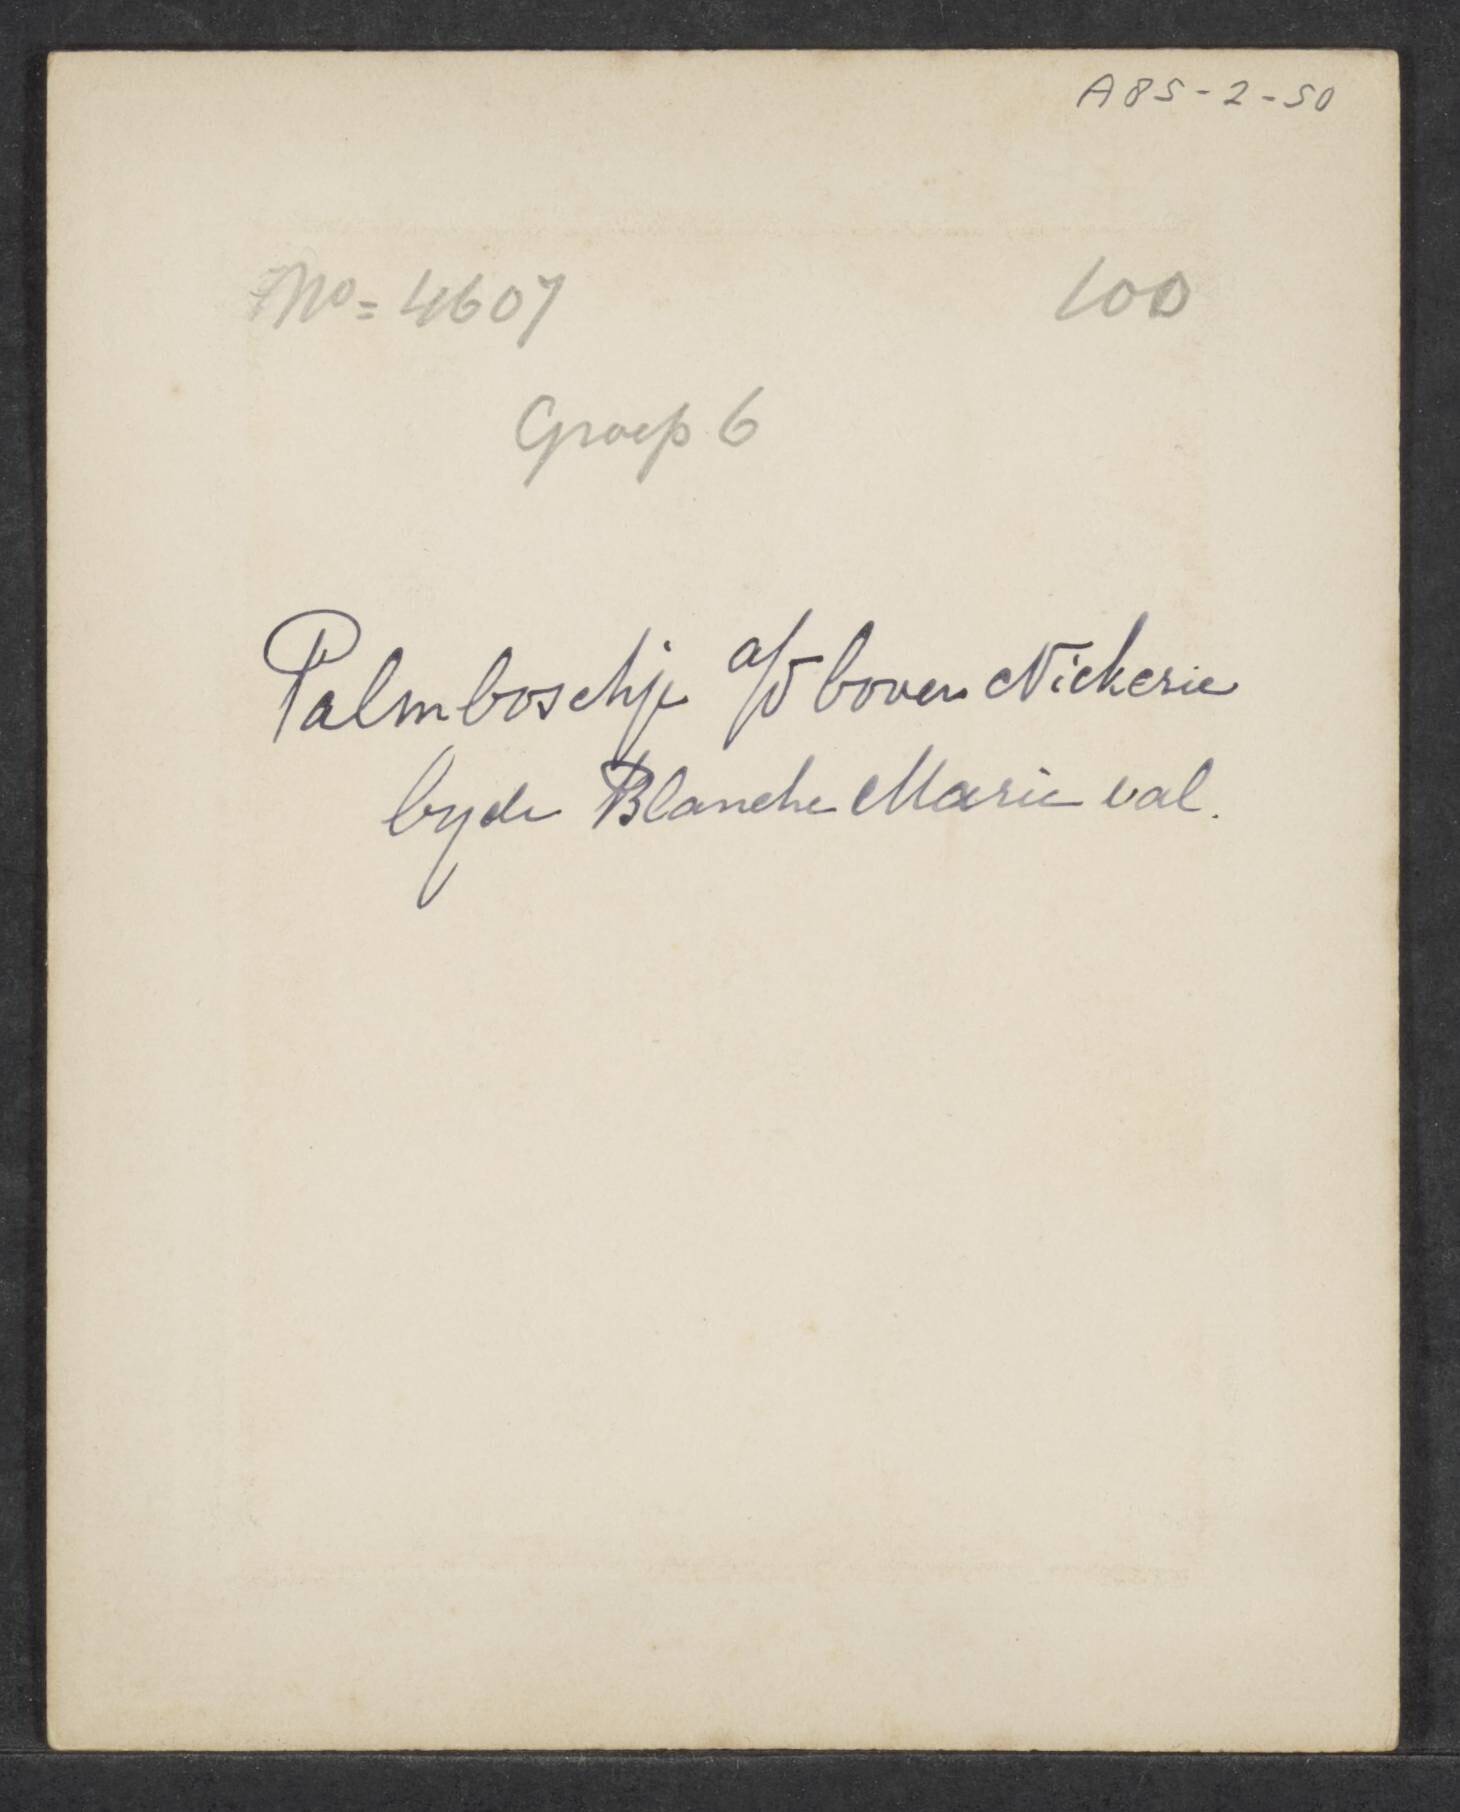 A85-2-50
No= 4607 100
Groep 6
Palmboschje a/d boven Nickerie
by de Blanche Marie val.